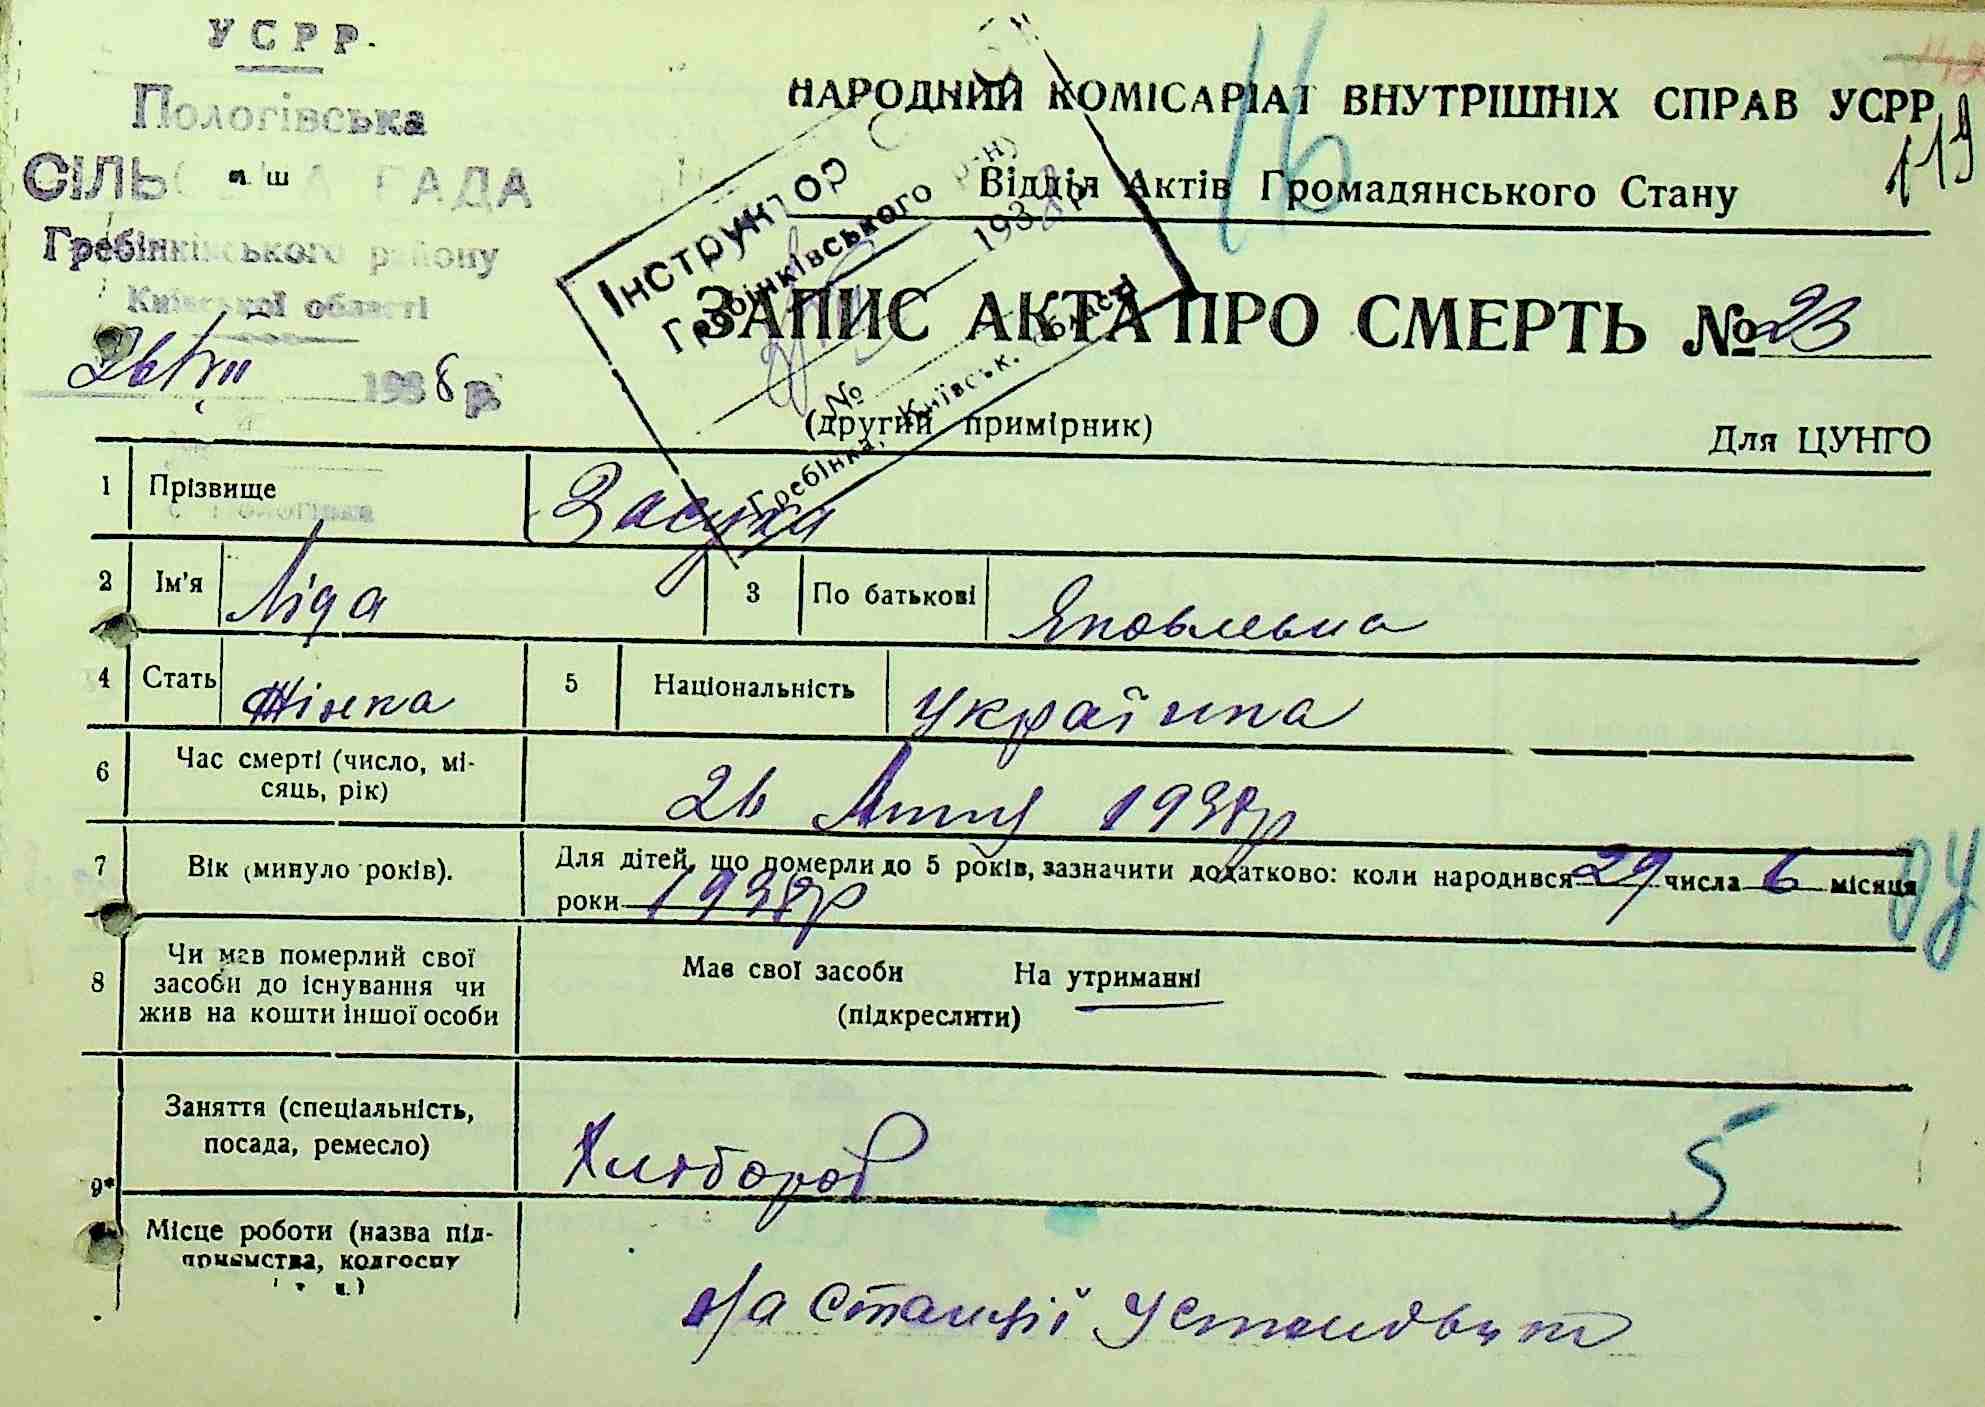 УСРР.
Пологівська
СІЛЬ РАДА
Гребінківського району
Київської області
26/VIII 1938 р.
НАРОДНИЙ КОМІСАРІАТ ВНУТРІШНІХ СПРАВ УСРР
119
16
Відділ Актів Громадянського Стану
Інструктор
Гребінківського р-ну
1938 р.
№
Гребінка, Київськ. області
ЗАПИС АКТА ПРО СМЕРТЬ № 23
(другий примірник)
Для ЦУНГО
1 Прізвище Засуха
2 Ім'я Ліда 3 По батькові Яковлевна
4 Стать Жінка 5 Національність Українка
6 Час смерті (число, мі-
сяць, рік) 26 1938р
7 Вік (минуло років). Для дітей, що померли до 5 років, зазначити додатково: коли народився 29 числа 6 місяця
роки 1938р
8 Чи мав померлий свої
засоби до існування чи
жив на кошти іншої особи
Має свої засоби На утриманні
(підкреслити)
9* Заняття (спеціальність,
посада, ремесло) Хлібороб
5
Місце роботи (назва під-
приємства, колгоспу
і т. п.)
на станції